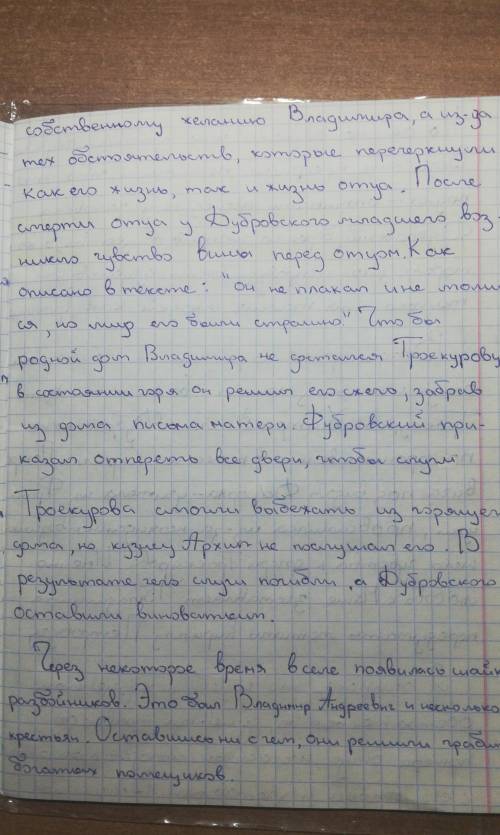 собственному желанию Владимира, а из-за
тех обстоятельств, которые перечеркнули
как его жизнь, так и жизнь отца. После
смерти отца у Дубровского младшего воз-
никло чувство вины перед отцом. Как
описано в тексте: "Он не плакал и не молил
ся, но лицо его было страшно." Что бы
родной дом Владимира не достался Троекурову
в состоянии горя он решил его сжечь, забрав
из дома письма матери. Дубровский при-
казал отпереть все двери, чтобы слуги
Троекурова смогли выбежать из горящего
дома, но кузнец Архип не послушал его. В
результате чего слуги погибли, а Дубровского
оставили виноватым.
Через некоторое время в селе появилась шайк
разбойников. Это был Владимир Андреевич и несколько
крестьян. Оставшись ни с чем, они решили граби
богатых помещиков.